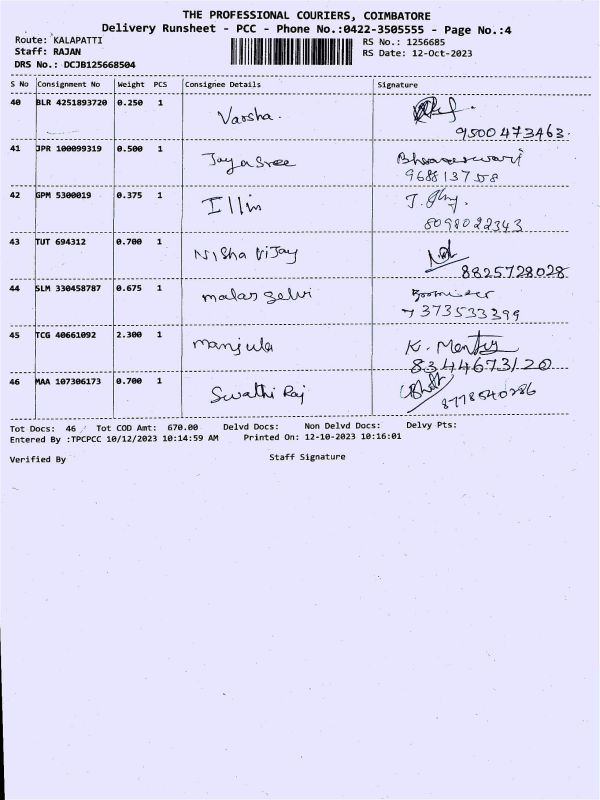 THE PROFESSIONAL COURIERS, COIMBATORE
Delivery Runsheet - PCC - Phone No.:0422-3505555 - Page No.:4
Route: KALAPATTI RS No.: 1256685
Staff: RAJAN RS Date: 12-Oct-2023
DRS No.: DCJB125668504
S No Consignment No Weight PCS Consignee Details Signature
40 BLR 4251893720 0.250 1 Varsha.
9500473463.
41 JPR 100099319 0.500 1 Jayasree Bhuvaneswari
9688137558
42 GPM 5300019 0.375 1 Illin
8098022343
43 TUT 694312 0.700 1 Nisha Vijay
8825728028
44 SLM 330458787 0.675 1 malar selvi
7373533399
45 TCG 40661092 2.300 1 manjula K.
8344673120
46 MAA 107306173 0.700 1 Swathi Raj
8778540286
Tot Docs: 46 Tot COD Amt: 670.00 Delvd Docs: Non Delvd Docs: Delvy Pts:
Entered By :TPCPCC 10/12/2023 10:14:59 AM Printed On: 12-10-2023 10:16:01
Verified By Staff Signature